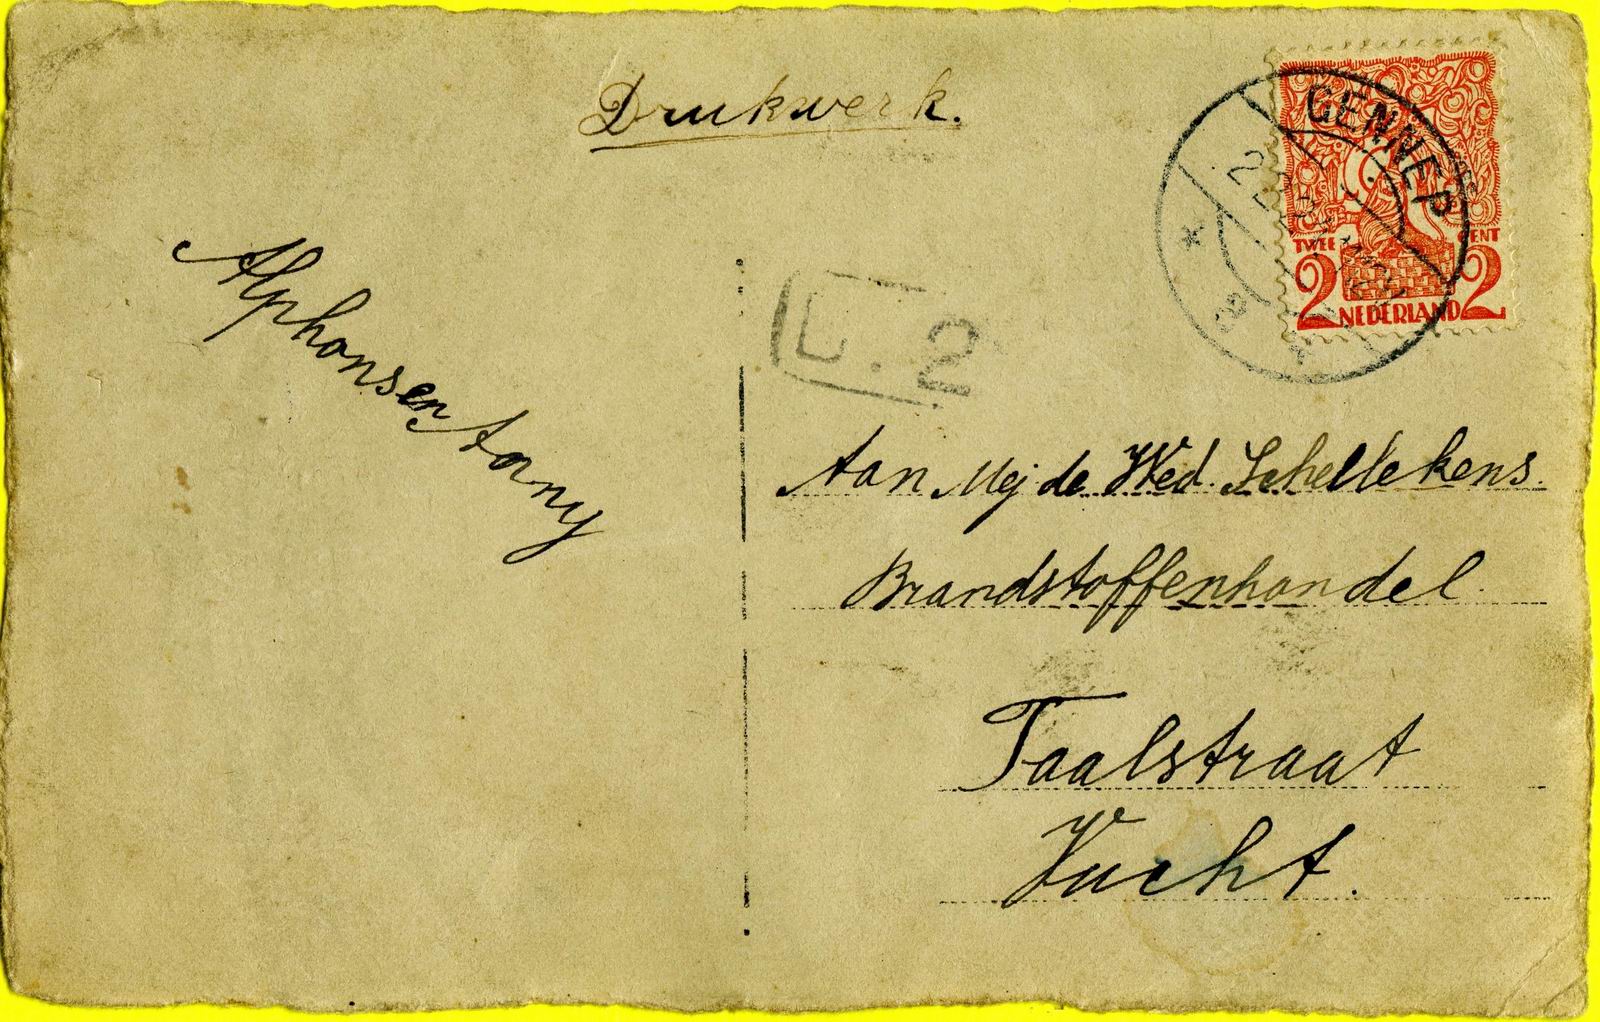 Drukwerk.
GENNEP
TWEE CENT
2 2
NEDERLAND
L.2
Alphonsen Tony
Aan Mej de Wed. Schellekens.
Brandstoffenhandel.
Taalstraat
Vucht.